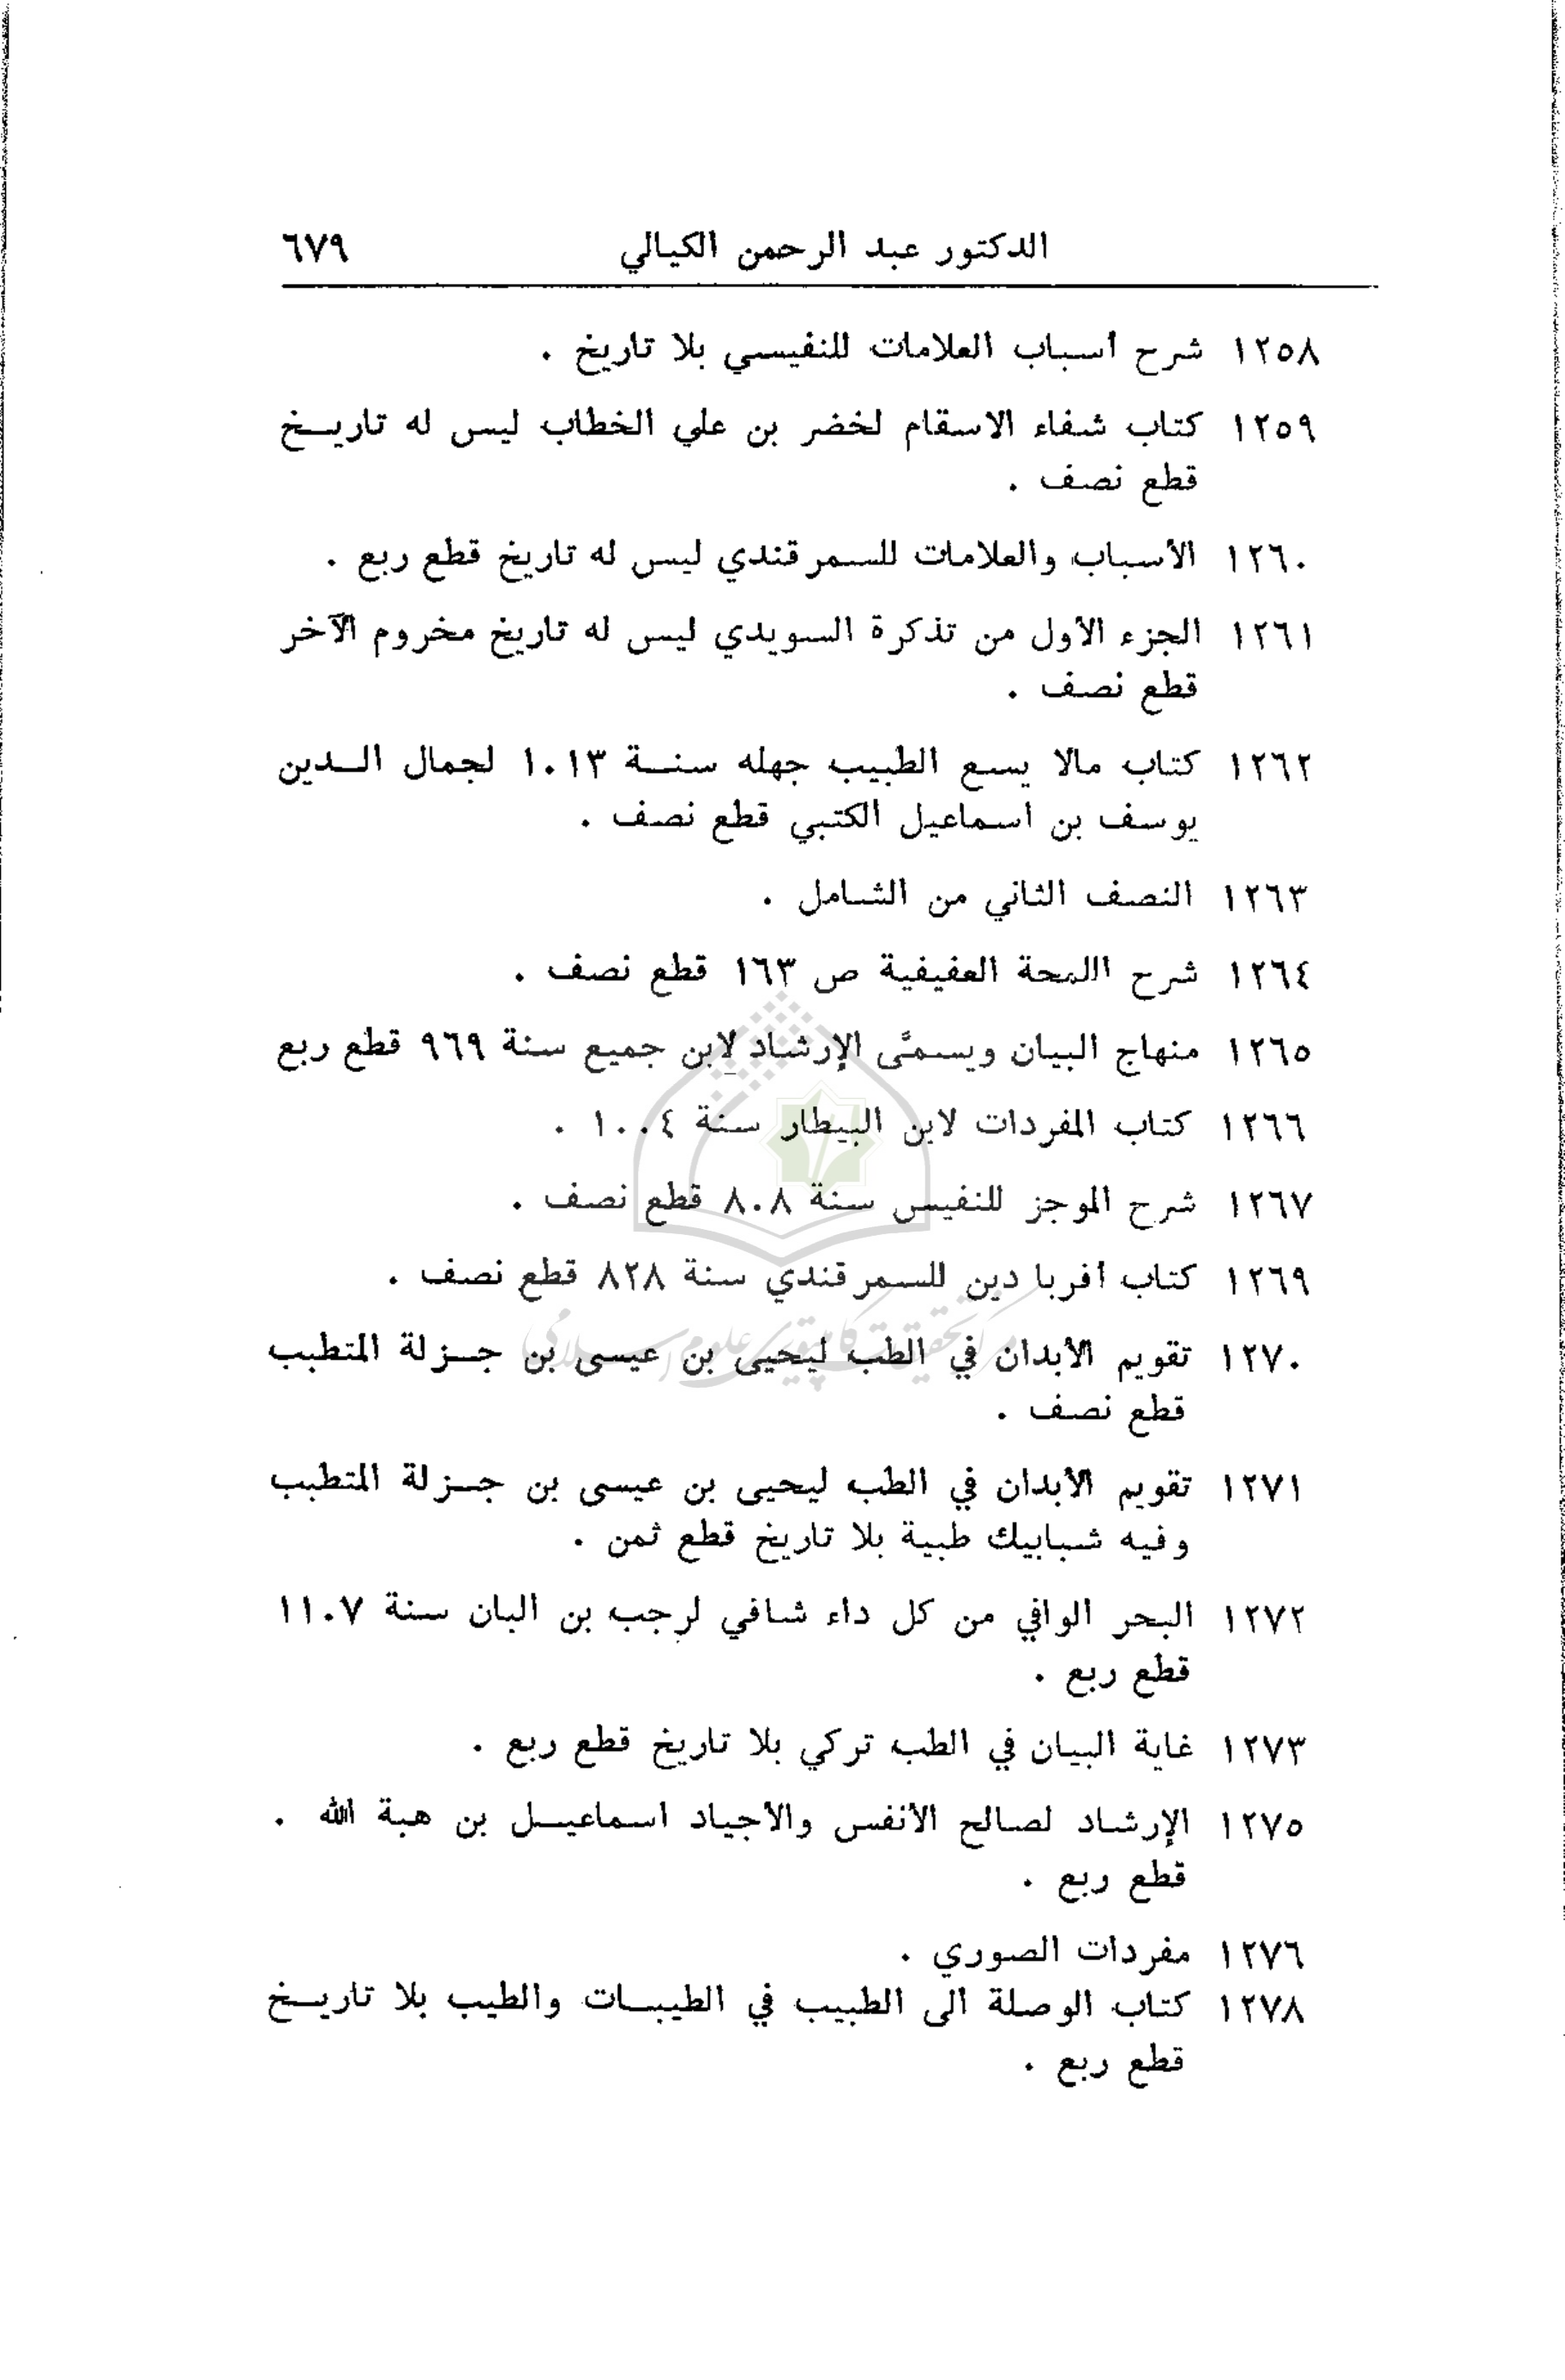 الدكتور عبد الرحمن الكيالي ٦٧٩
١٢٥٨ شرح أسباب العلامات للنفيسي بلا تاريخ .
١٢٥٩ كتاب شفاء الاسقام لخضر بن علي الخطاب ليس له تاريخ
قطع نصف .
١٢٦٠ الأسباب والعلامات للسمرقندي ليس له تاريخ قطع ربع .
١٢٦١ الجزء الأول من تذكرة السويدي ليس له تاريخ مخروم الآخر
قطع نصف .
١٢٦٢ كتاب مالا يسع الطبيب جهله سنة ١٠١٣ لجمال الدين
يوسف بن اسماعيل الكتبي قطع نصف .
١٢٦٣ النصف الثاني من الشامل .
١٢٦٤ شرح اللمحة العفيفية ص ١٦٣ قطع نصف .
١٢٦٥ منهاج البيان ويسمَّى الإرشاد لابن جميع سنة ٩٦٩ قطع ربع
١٢٦٦ كتاب المفردات لابن البيطار سنة ١٠٠٤ .
١٢٦٧ شرح الموجز للنفيس سنة ٨٠٨ قطع نصف .
١٢٦٩ كتاب أفربا دين للسمرقندي سنة ٨٢٨ قطع نصف .
مركز تحقيقات كامپيوتری علوم اسلامی
١٢٧٠ تقويم الأبدان في الطب ليحيى بن عيسى بن جزلة المتطبب
قطع نصف .
١٢٧١ تقويم الأبدان في الطب ليحيى بن عيسى بن جزلة المتطبب
وفيه شبابيك طبية بلا تاريخ قطع ثمن .
١٢٧٢ البحر الوافي من كل داء شافي لرجب بن البان سنة ١١٠٧
قطع ربع .
١٢٧٣ غاية البيان في الطب تركي بلا تاريخ قطع ربع .
١٢٧٥ الإرشاد لصالح الأنفس والأجياد اسماعيل بن هبة الله .
قطع ربع .
١٢٧٦ مفردات الصوري .
١٢٧٨ كتاب الوصلة الى الطبيب في الطيبات والطيب بلا تاريخ
قطع ربع .